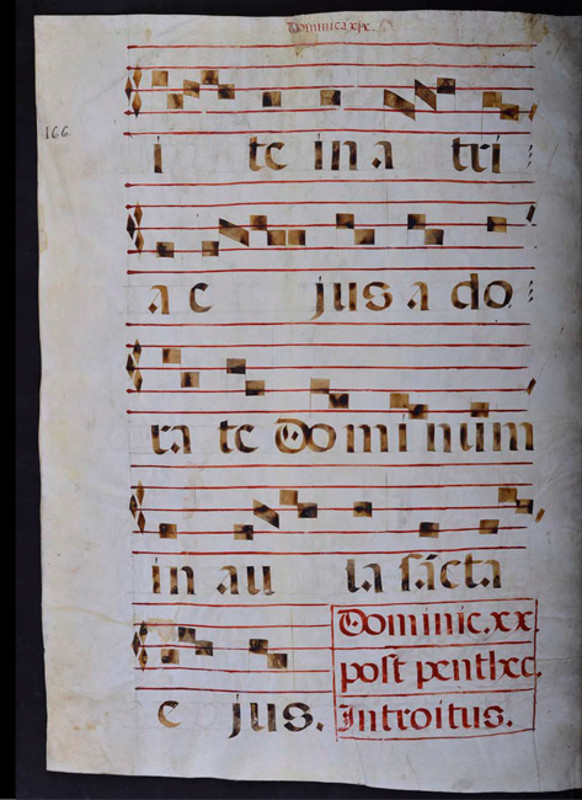 Dominica xix.
166
i te in a tri
a e jus a do
ra te Dominum
in au la sácta
e jus.
Dominic. xx
post penthec.
Introitus.